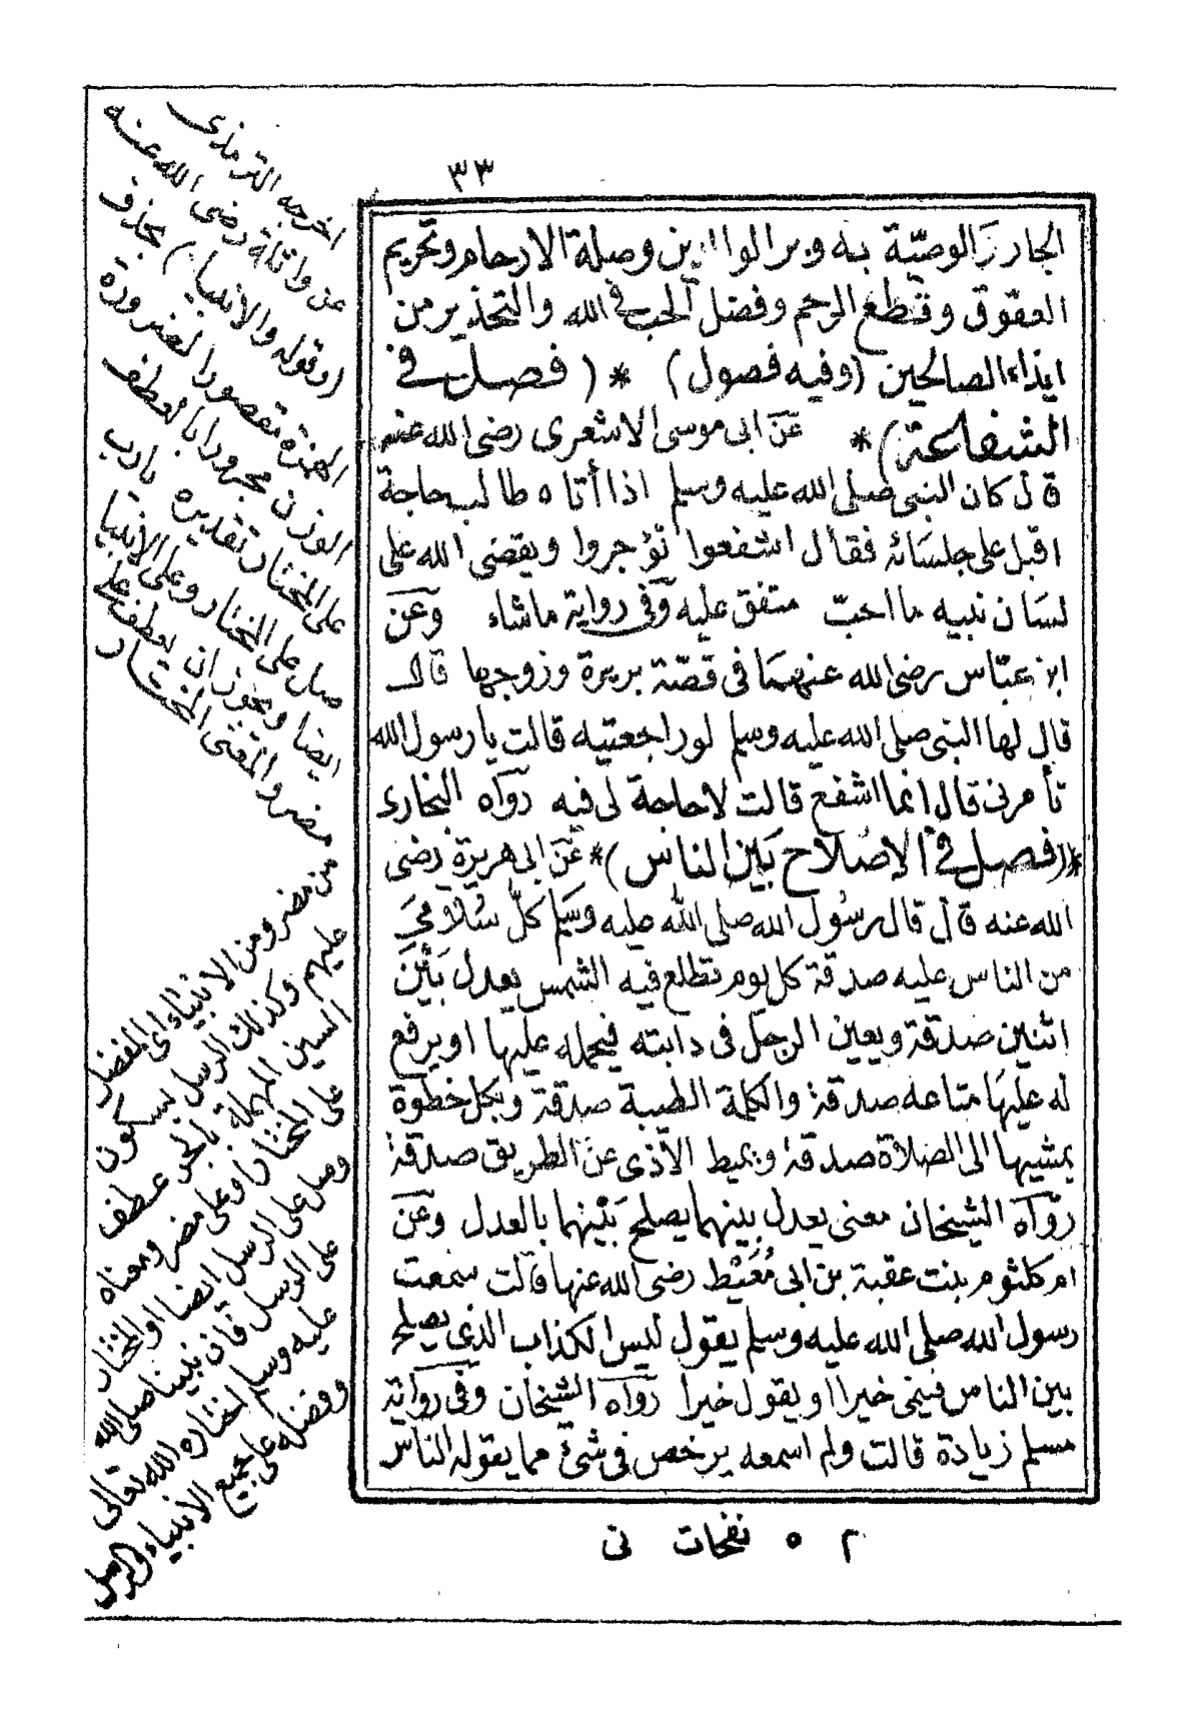 ٣٣
الجار والوصيّة به وبر الوالدين وصلة الارحام وتحريم
العقوق وقطع الرحم وفضل الحب في الله والتحذير من
ايذاء الصالحين (وفيه فصول) * (فصل في
الشفاعة)* عن ابى موسى الاشعرى رضى الله عنه
قال كان النبى صلى الله عليه وسلم اذا أتاه طالب حاجة
اقبل على جلسائه فقال اشفعوا تؤجروا ويقضى الله على
لسان نبيه ما احبّ متفق عليه وفى رواية ماشاء وعن
ابن عبّاس رضى الله عنهما فى قصّة بريرة وزوجها قال
قال لها النبى صلى الله عليه وسلم لو راجعتيه قالت يا رسول الله
تأمرنى قال انما اشفع قالت لا حاجة لى فيه رواه البخارى
*(فصل في الاصلاح بين الناس)* عن ابى هريرة رضى
الله عنه قال قال رسول الله صلى الله عليه وسلم كلّ سُلامى
من الناس عليه صدقة كل يوم تطلع فيه الشمس يعدل بَيْنَ
اثنين صدقة ويعين الرجل فى دابته فيحمله عليها او يرفع
له عليها متاعه صدقة والكلمة الطيبة صدقة وبكل خطوة
يمشيها الى الصلاة صدقة ويميط الأذى عن الطريق صدقة
روّاه الشيخان معنى يعدل بينهما يصلح بَيْنهما بالعدل وعن
ام كلثوم بنت عقبة بن ابى مُعَيْط رضى الله عنها قالت سمعت
رسول الله صلى الله عليه وسلم يقول ليس الكذاب الذى يصلح
بين الناس فينمى خيرا او يقول خيرا رواه الشيخان وفى رواية
مسلم زيادة قالت ولم اسمعه يرخص فى شئ مما يقوله الناس
٢ ٥ نفحات نى
اخرجه الترمذى
عن واثلة رضى الله عنه
او قوله والانبيا) بحذف
الهمزة مقصورا لضرورة
الوزن مجرورا بالعطف
على المختار تقديره يارب
صل على المختار وعلى الانبيا
ايضا ويجوز ان يعطف على
مضر والمعنى المختار
من مضر ومن الانبياء اى المفضل
عليهم وكذلك الرسل بسكون
السين المهملة بالجر عطف
على المختار او على مضر ومعناه
وصل على الرسل ايضا او المختار
على الرسل فان نبينا صلى الله
عليه وسلم اختاره الله تعالى
وفضله على جميع الانبياء والرسل